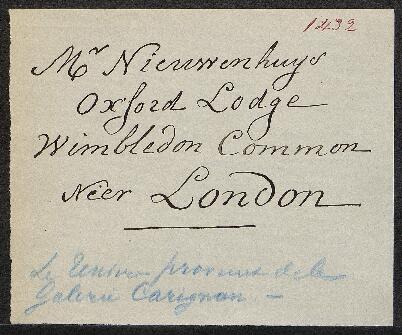 1432
Mr Nieuwenhuys
Oxford Lodge
Wimbledon Common
Néer London
Le provenu de la
Galerie Carignan —